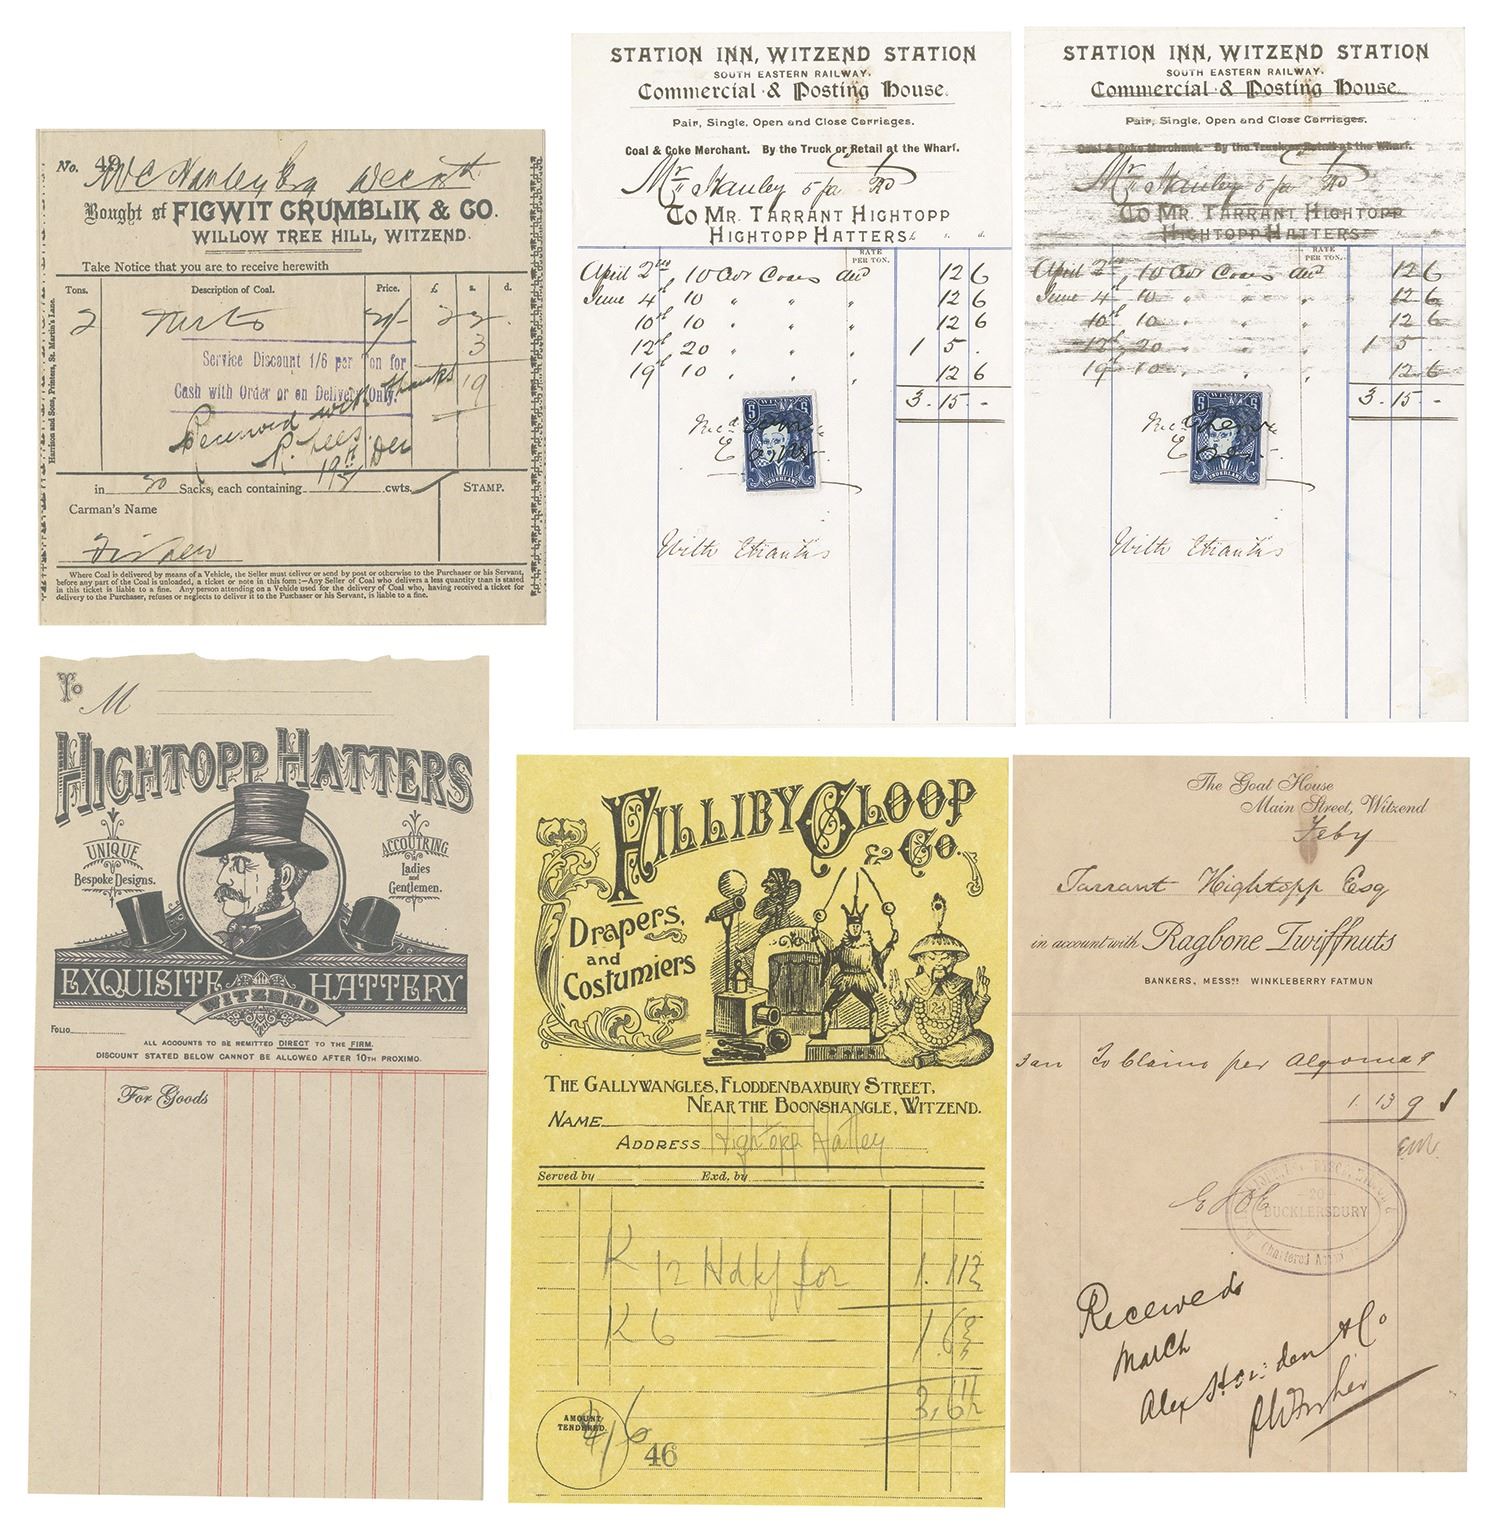 No. 49
Dec
Bought of FIGWIT CRUMBLIK & CO.
WILLOW TREE HILL, WITZEND.
Take Notice that you are to receive herewith
Tons. Description of Coal. Price. £ s. d.
2
3
Service Discount 1/6 per Ton for
19
Cash with Order or on Delivery Only.
Received with thanks
Dec
in Sacks, each containing cwts.
STAMP.
Carman's Name
Where Coal is delivered by means of a Vehicle, the Seller must deliver or send by post or otherwise to the Purchaser or his Servant,
before any part of the Coal is unloaded, a ticket or note in this form:—Any Seller of Coal who delivers a less quantity than is stated
in this ticket is liable to a fine. Any person attending on a Vehicle used for the delivery of Coal who, having received a ticket for
delivery to the Purchaser, refuses or neglects to deliver it to the Purchaser or his Servant, is liable to a fine.
Harrison and Sons, Printers, St. Martin's Lane.
STATION INN, WITZEND STATION
SOUTH EASTERN RAILWAY.
Commercial & Posting House.
Pair, Single, Open and Close Carriages.
Coal & Coke Merchant. By the Truck or Retail at the Wharf.
Mr Stanley
TO MR. TARRANT HIGHTOPP
HIGHTOPP HATTERS
£ s. d.
RATE
PER TON.
April 2nd, 10 Cwt Coals 12 6
June 4th 10 " " " 12 6
10th 10 " " " 12 6
12th 20 " " " 1 5 .
19th 10 " " " 12 6
3. 15 -
5 5
UNDERLAND
With thanks
STATION INN, WITZEND STATION
SOUTH EASTERN RAILWAY.
Commercial & Posting House.
Pair, Single, Open and Close Carriages.
Coal & Coke Merchant. By the Truck or Retail at the Wharf.
Mr Stanley
TO MR. TARRANT HIGHTOPP
HIGHTOPP HATTERS
RATE
PER TON.
April 2nd, 10 Cwt Coals 12 6
June 4th 10 " " " 12 6
10th 10 " " " 12 6
12th 20 " " " 1 5
19th 10 " " " 12 6
3. 15 -
5 5
UNDERLAND
With thanks
To M
HIGHTOPP HATTERS
UNIQUE
Bespoke Designs.
ACCOUTRING
Ladies
and
Gentlemen.
EXQUISITE HATTERY
WITZEND
FOLIO
ALL ACCOUNTS TO BE REMITTED DIRECT TO THE FIRM.
DISCOUNT STATED BELOW CANNOT BE ALLOWED AFTER 10TH PROXIMO.
For Goods
FILLIBY GLOOP
& Co.
Drapers,
and
Costumiers
THE GALLYWANGLES, FLODDENBAXBURY STREET,
NEAR THE BOONSHANGLE, WITZEND.
NAME
ADDRESS Hightopp Hattey
Served by Exd. by
K 12 Hdkf for 1. 11½
K 6
AMOUNT
TENDERED.
46
The Goat House
Main Street, Witzend
Feby
Tarrant Hightopp Esq
in account with Ragbone Twiffnuts
BANKERS, MESSRS WINKLEBERRY FATMUN
Jan To Claim per Algoma
1. 13 9
E & O E
20
BUCKLERSBURY
Received
March